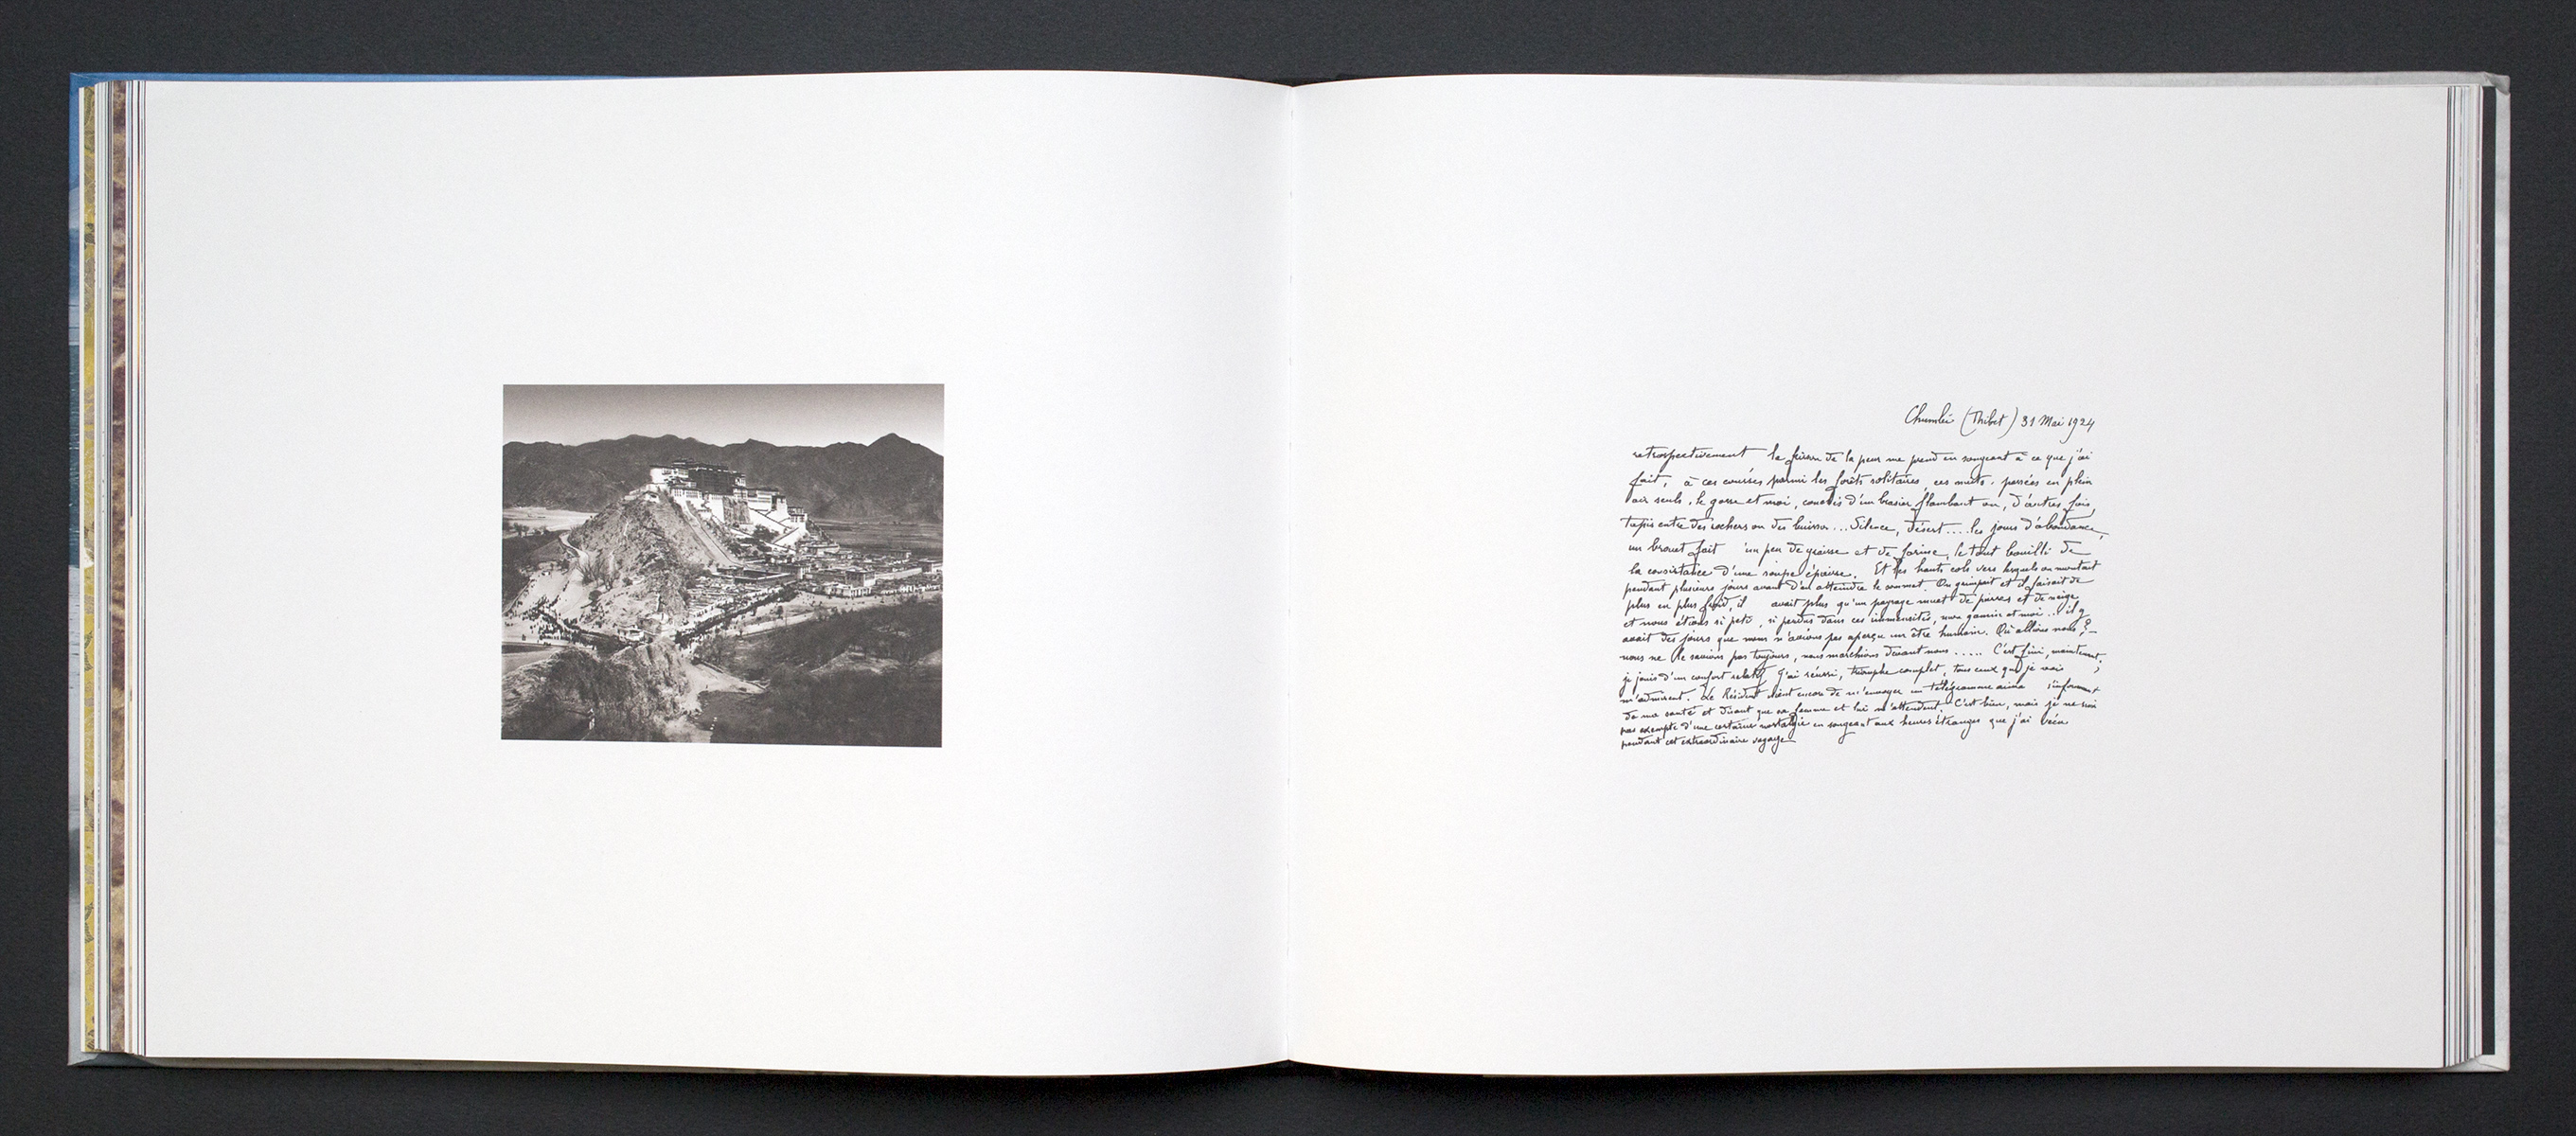 Chumbi (Thibet) 31 Mai 1924
retrospectivement le frisson de la peur me prend en songeant à ce que j'ai
fait, à ces courses parmi les forêts solitaires, ces nuits passées en plein
air seuls, le gosse et moi, couchés d'un brasier flambant ou, d'autres fois,
tapis entre des rochers ou des buissons... Silence, désert.... les jours d'abondance,
un brouet fait un peu de graisse et de farine, le tout bouilli de
la consistance d'une soupe épaisse. Et les hauts cols vers lesquels on montait
pendant plusieurs jours avant d'en atteindre le sommet. On grimpait et il faisait de
plus en plus froid, il avait plus qu'un paysage muet de pierres et de neige
et nous étions si petits, si perdus dans ces immensités, mon gamin et moi... il y
avait des jours que nous n'avions pas aperçu un être humain. Où allions nous ?_
nous ne le savions pas toujours, nous marchions devant nous ..... C'est fini, maintenant,
je jouis d'un confort relatif. J'ai réussi, triomphe complet, tous ceux que je vois
m'admirent. Le Résident vient encore de m'envoyer un télégramme s'informant
de ma santé et disant que sa femme et lui m'attendent. C'est bien, mais je ne suis
pas exempte d'une certaine nostalgie en songeant aux heures étranges que j'ai vécu
pendant cet extraordinaire voyage